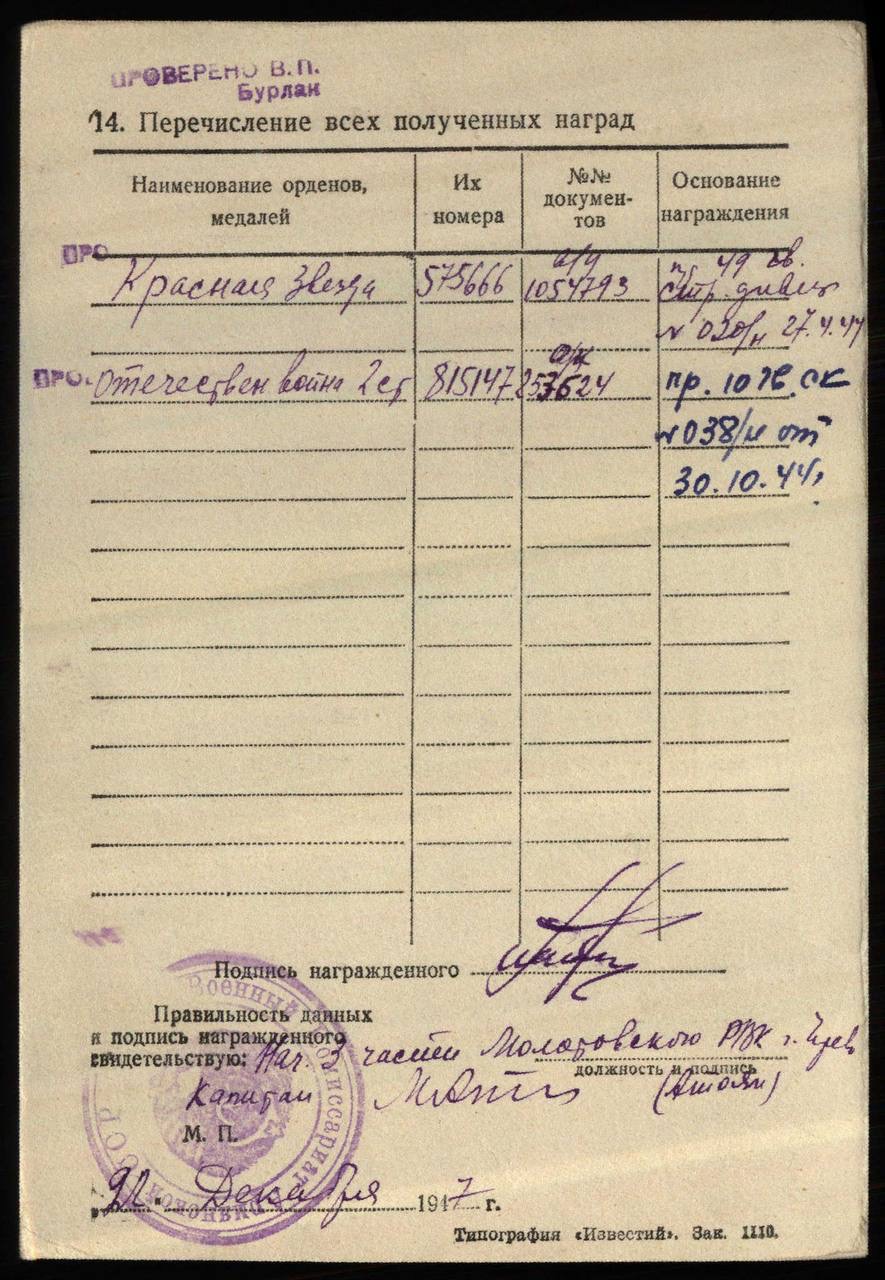 ПРОВЕРЕНО В. П.
Бурлак
14. Перечисление всех полученных наград
Наименование орденов, медалей
Их номера
№№ документов
Основание награждения
ПРО
Красная Звезда 575666 1054793 49 гв.
стр. дивиз
№ 020/н 27.4.44
ПРО
Отечествен война 2 ст 815147 пр. 10 гв. СК
№ 038/н от
30.10.44г
Подпись награжденного
Правильность данных
и подпись награжденного
свидетельствую: Нач. 3 части Молотовского РВК г.
должность и подпись
Капитан
М. П.
Военный Комиссариат
Декабря 1947 г.
Типография «Известий». Зак. 1110.